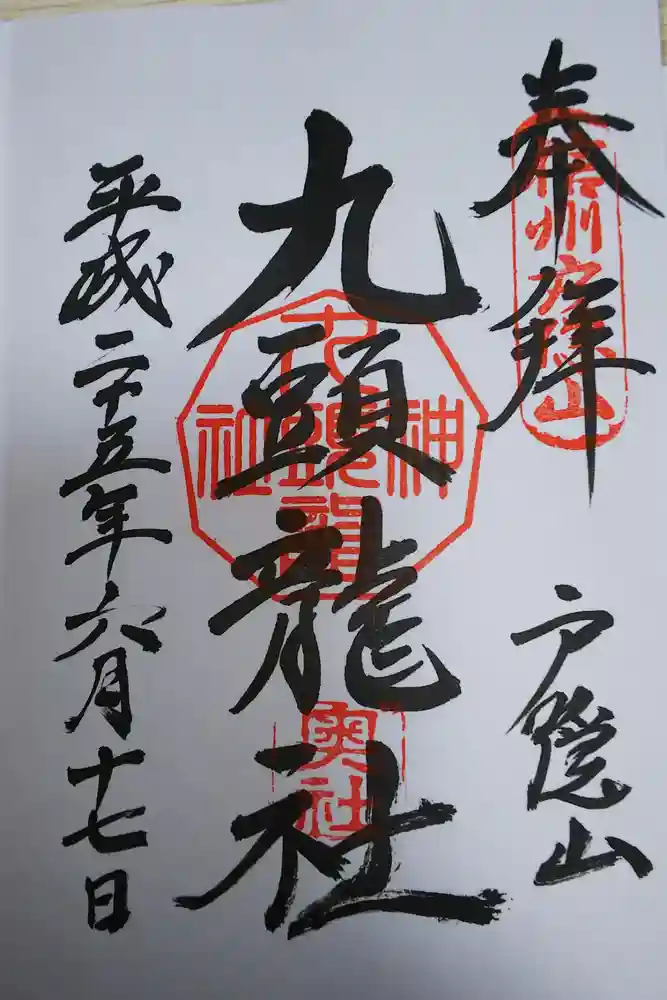 奉拝
信州戸隠山
戸隠山
九頭龍社
九頭龍神社
奥社
平成二十五年六月十七日